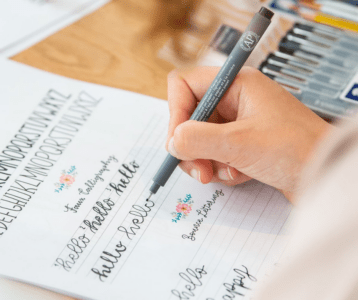 ABCDEFGHIJKLMNOPQRSTUVWXYZ
ABCDEFGHIJKLMNOPQRSTUVWXYZ
faux calligraphy
hello hello hello
hello hello
bounce lettering
hello
happy